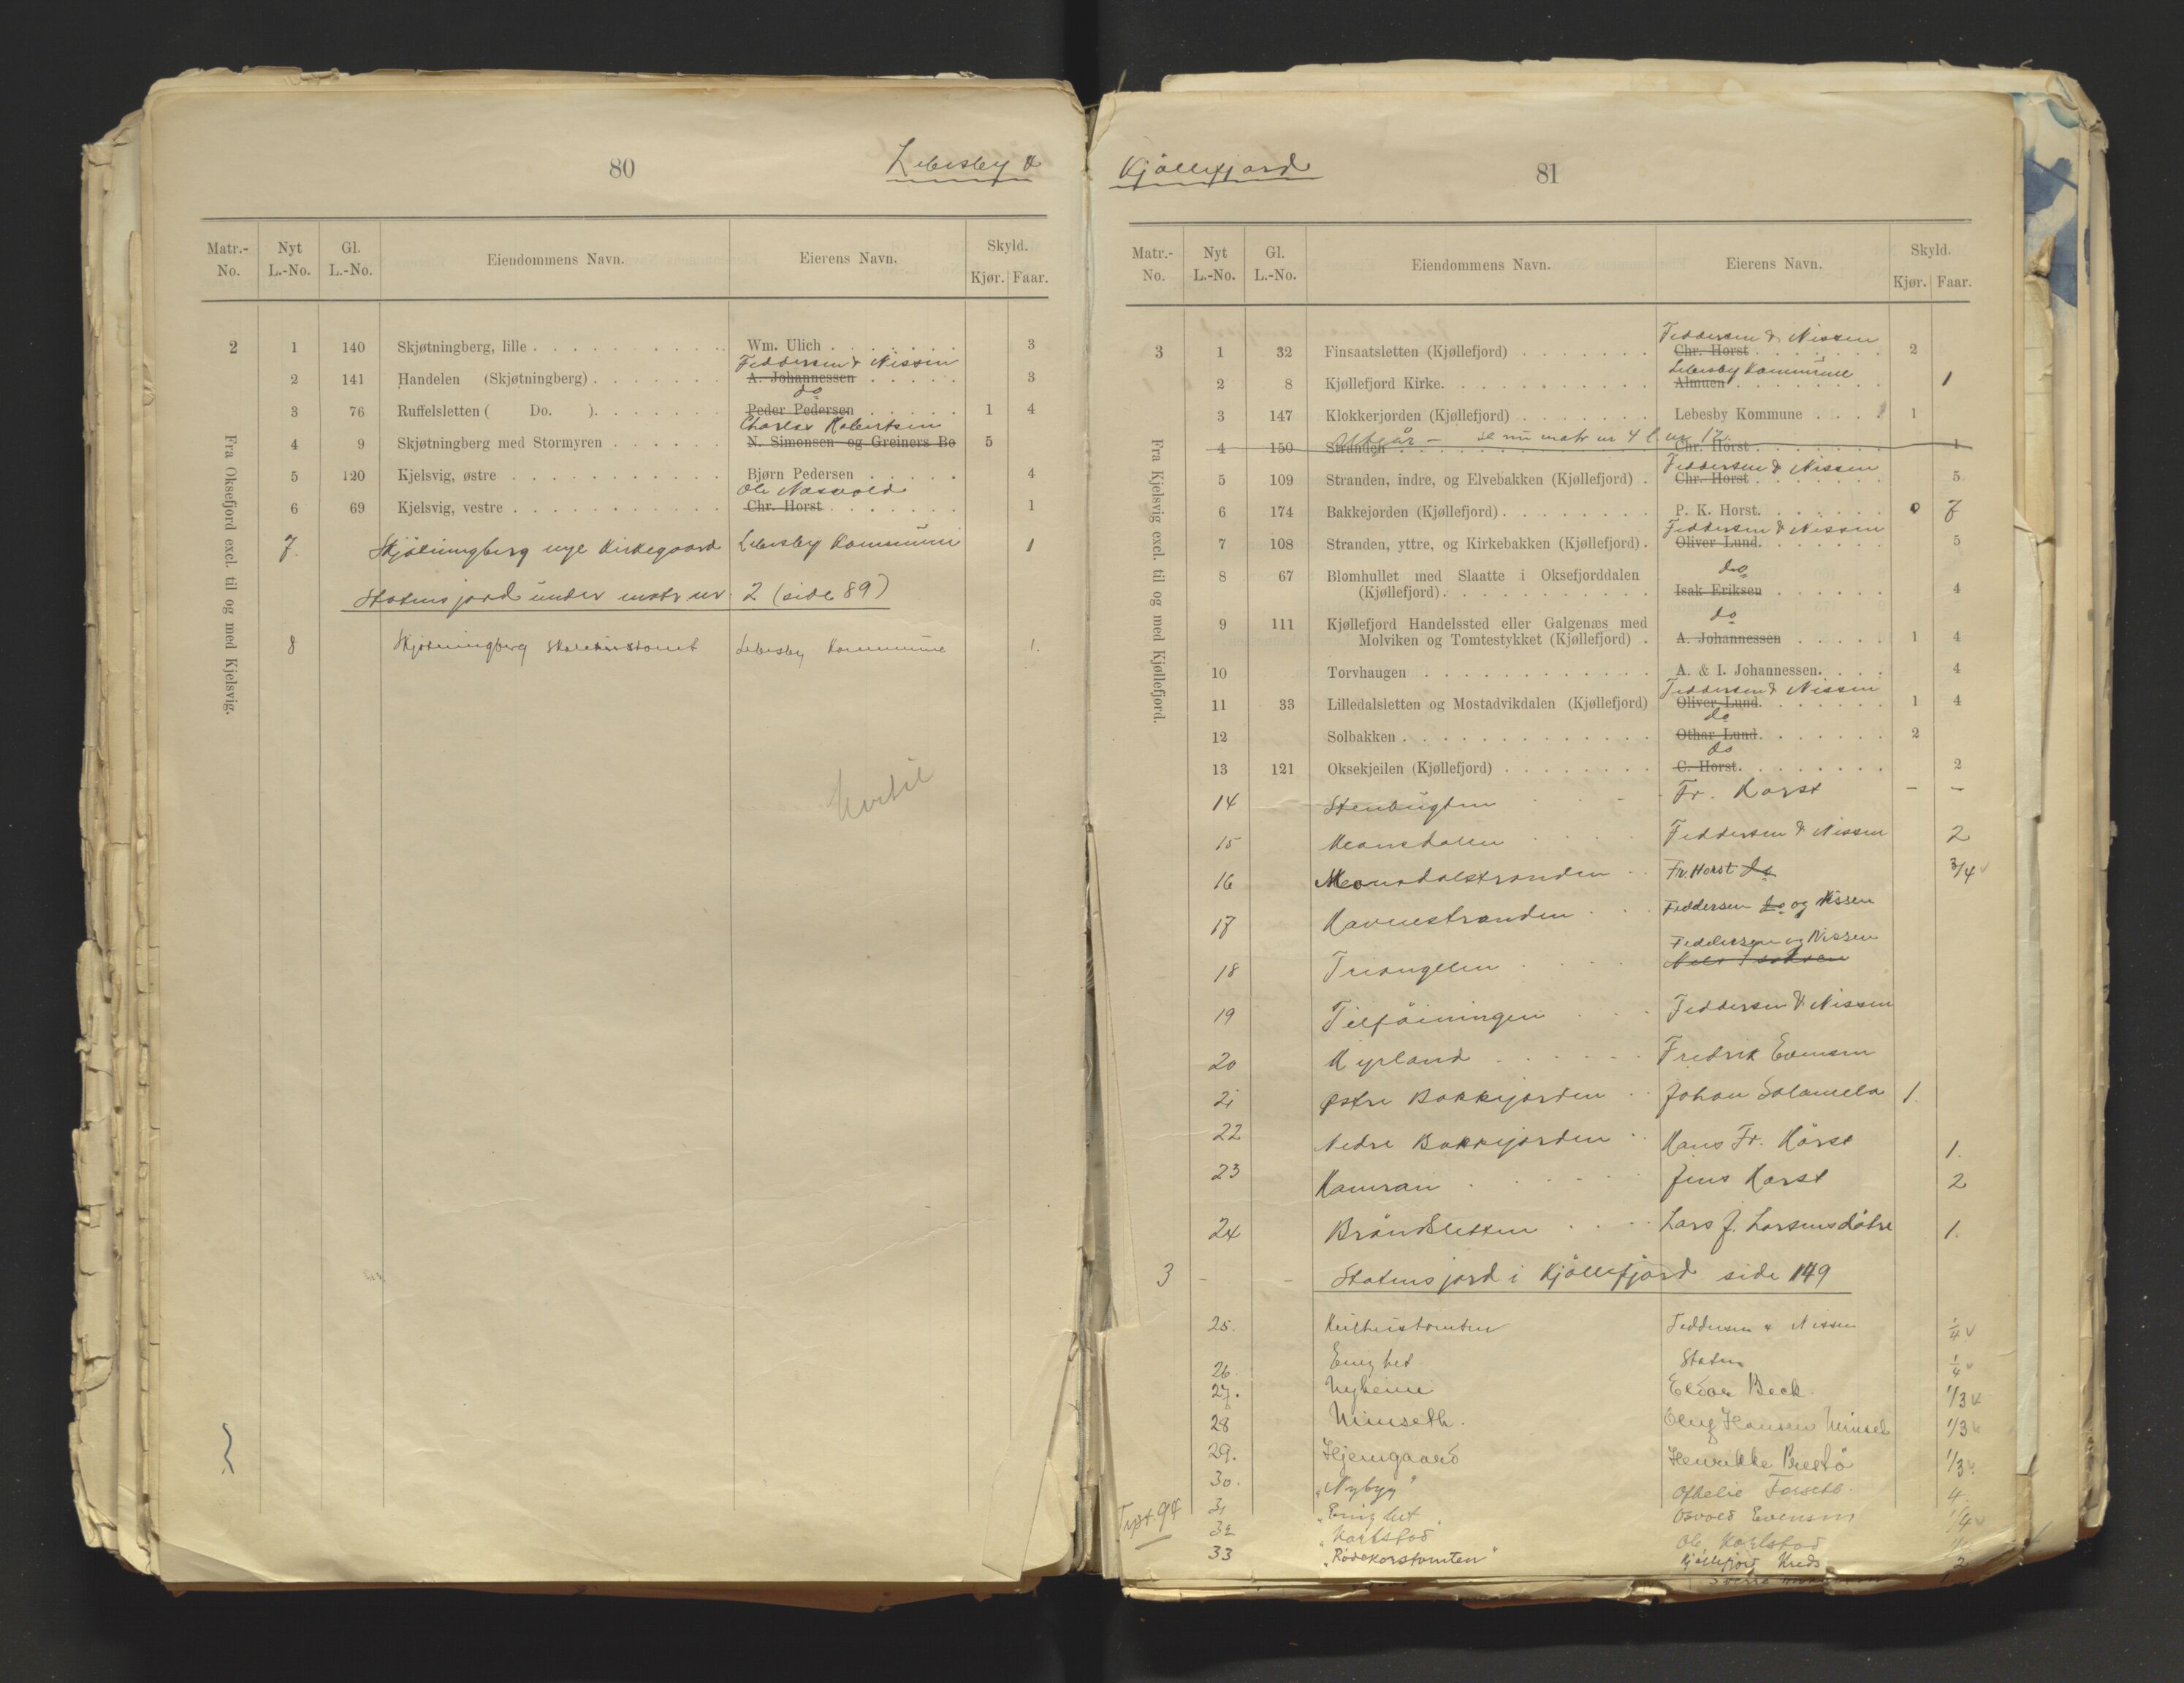 80
Lebesby &
Matr.-No. Nyt L.-No. Gl. L.-No. Eiendommens Navn. Eierens Navn. Skyld. Kjør. Faar.
Fra Oksefjord excl. til og med Kjelsvig.
2 1 140 Skjøtningberg, lille Wm. Ulich 3
Feddersen & Nissen
2 141 Handelen (Skjøtningberg) A. Johannessen 3
do
3 76 Ruffelsletten ( Do. ) Peder Pedersen 1 4
Charles Robertsen
4 9 Skjøtningberg med Stormyren N. Simonsen og Greiners Bo 5
5 120 Kjelsvig, østre Bjørn Pedersen 4
Ole Næsvold
6 69 Kjelsvig, vestre Chr. Horst 1
7. Skjötningberg nye Kirkegaard Lebesby Kommune 1
Statens jord under matr nr. 2 (side 89)
8 Skjötningberg skolehustomt Lebesby Kommune 1.
Kjöllefjord
81
Matr.-No. Nyt L.-No. Gl. L.-No. Eiendommens Navn. Eierens Navn. Skyld. Kjør. Faar.
Fra Kjelsvig excl. til og med Kjøllefjord.
Feddersen & Nissen
3 1 32 Finsaatsletten (Kjøllefjord) Chr. Horst 2
Lebesby Kommune
2 8 Kjøllefjord Kirke. Almuen 1
3 147 Klokkerjorden (Kjøllefjord) Lebesby Kommune 1
Utgår - se nu matr nr 4 l. nr 12.
4 150 Stranden Chr. Horst 1
Feddersen & Nissen
5 109 Stranden, indre, og Elvebakken (Kjøllefjord) Chr. Horst 5
6 174 Bakkejorden (Kjøllefjord) P. K. Horst. 7
Feddersen & Nissen
7 108 Stranden, yttre, og Kirkebakken (Kjøllefjord) Oliver Lund. 5
do
8 67 Blomhullet med Slaatte i Oksefjorddalen
(Kjøllefjord) Isak Eriksen 4
do
9 111 Kjøllefjord Handelssted eller Galgenæs med
Molviken og Tomtestykket (Kjøllefjord) A. Johannessen 1 4
10 Torvhaugen A. & I. Johannessen. 4
Feddersen & Nissen
11 33 Lilledalsletten og Mostadvikdalen (Kjøllefjord) Oliver Lund. 1 4
do
12 Solbakken Othar Lund. 2
do
13 121 Oksekjeilen (Kjøllefjord) C. Horst. 2
14 Stenbugten Fr. Horst - -
15 Monsdalen Feddersen & Nissen 2
16 Monsdalstranden Fr. Horst do 3/4
17 Havnestranden Feddersen do og Nissen
Feddersen og Nissen
18 Triangelen
19 Tilföiningen Feddersen & Nissen
20 Nyland Fredrik Evensen
21 Østre Bakkejorden Johan Salamela 1.
22 Nedre Bakkejorden Hans Fr. Hörst 1.
23 Hamran Jens Horst 2
24 Bröndsletten Lars J. Larsens dötre 1.
3 - - Statens jord i Kjöllefjord side 149
25. Feddersen & Nissen 1/4
26. Enighet Staten 1/4
27. Nyheim Eldar Beck. 1/3
28 Nimseth. Oluf Hansen 1/3
29. Hjemgaard Henrikke Prestö 1/3
30. "Nybyg" Ofhelie Forseth. 4.
31 "Enighet" Osvald Evensen 1/4
32 "Karlstad" Ole Karlstad
33 "Rödekorstomten" Kjöllefjord Kreds 2